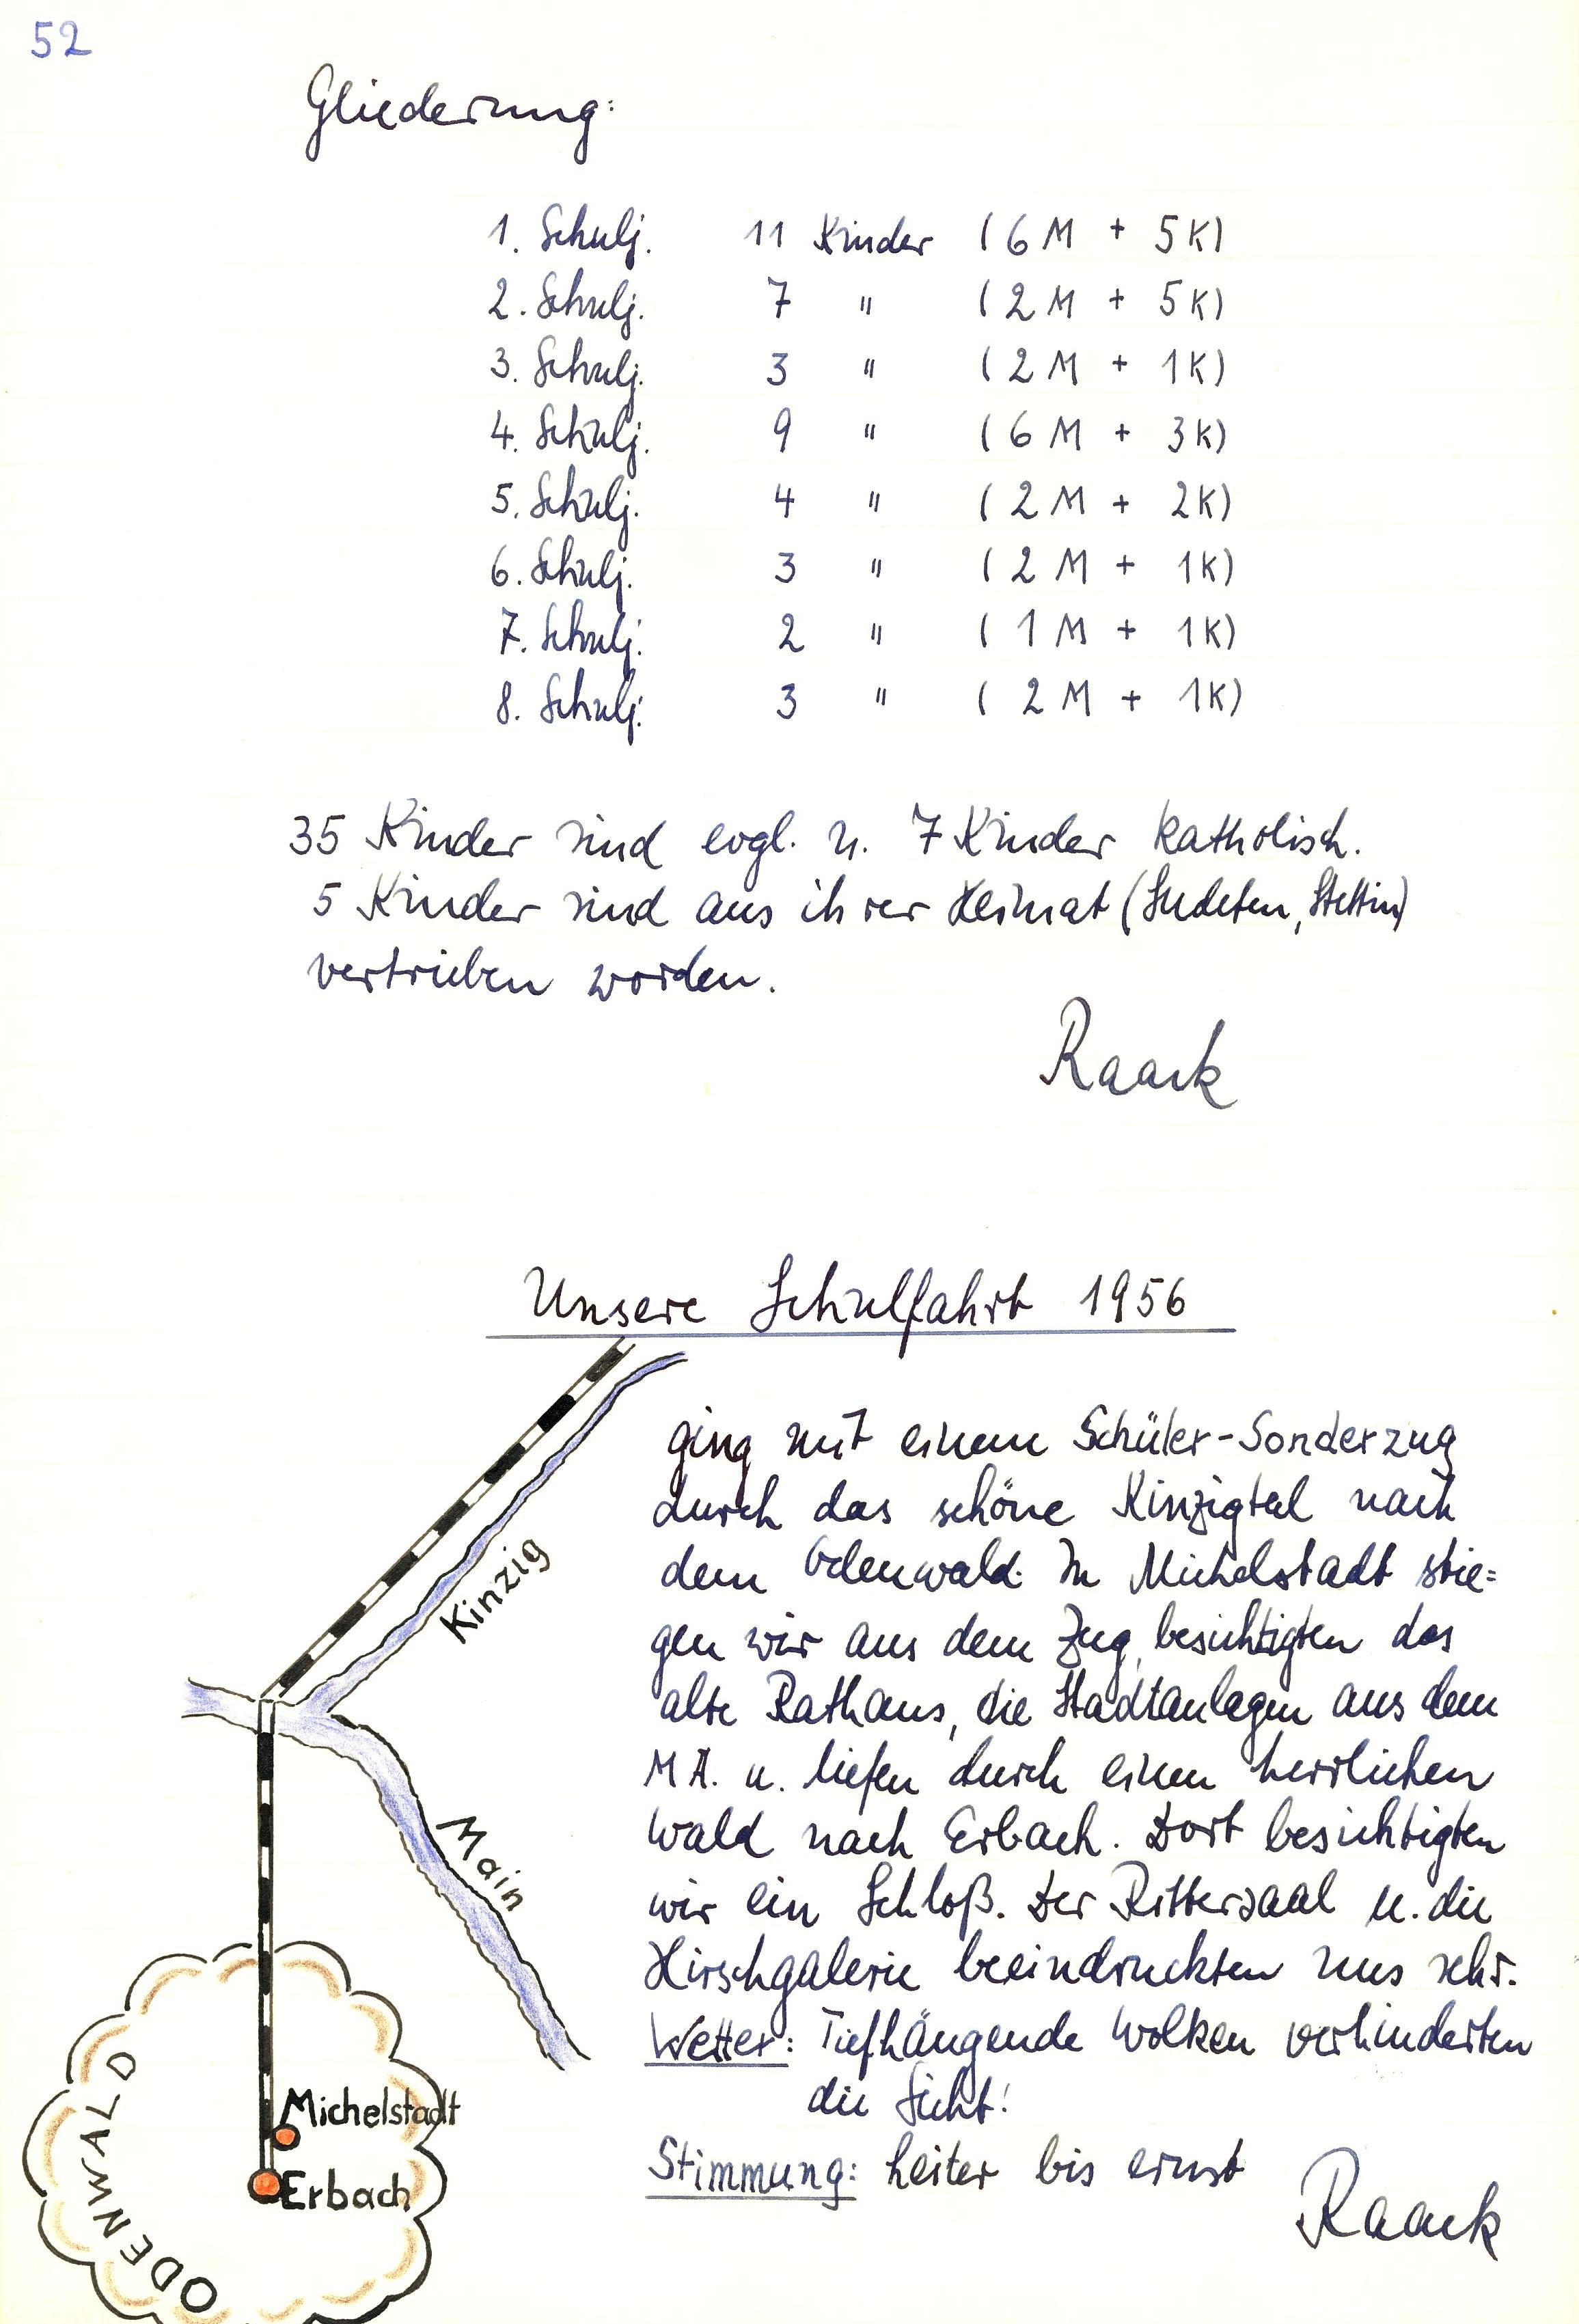 52
Gliederung:
1. Schulj. 11 Kinder (6 M + 5 K)
2. Schulj. 7 " (2 M + 5 K)
3. Schulj. 3 " (2 M + 1 K)
4. Schulj. 9 " (6 M + 3 K)
5. Schulj. 4 " (2 M + 2 K)
6. Schulj. 3 " (2 M + 1 K)
7. Schulj. 2 " (1 M + 1 K)
8. Schulj. 3 " (2 M + 1 K)
35 Kinder sind evgl. u. 7 Kinder katholisch.
5 Kinder sind aus ihrer Heimat (Sudeten, Stettin)
vertrieben worden.
Raack
Unsere Schulfahrt 1956
ging mit einem Schüler-Sonderzug
durch das schöne Kinzigtal nach
dem Odenwald. In Michelstadt stie=
gen wir aus dem Zug, besichtigten das
alte Rathaus, die Stadtanlagen aus dem
MA. u. liefen durch einen herrlichen
Wald nach Erbach. Dort besichtigten
wir ein Schloß. Der Rittersaal u. die
Hirschgalerie beeindruckten uns sehr.
Wetter: Tiefhängende Wolken verhinderten
die Sicht!
Stimmung: heiter bis ernst
Raack
Kinzig
Main
Michelstadt
Erbach
ODENWALD